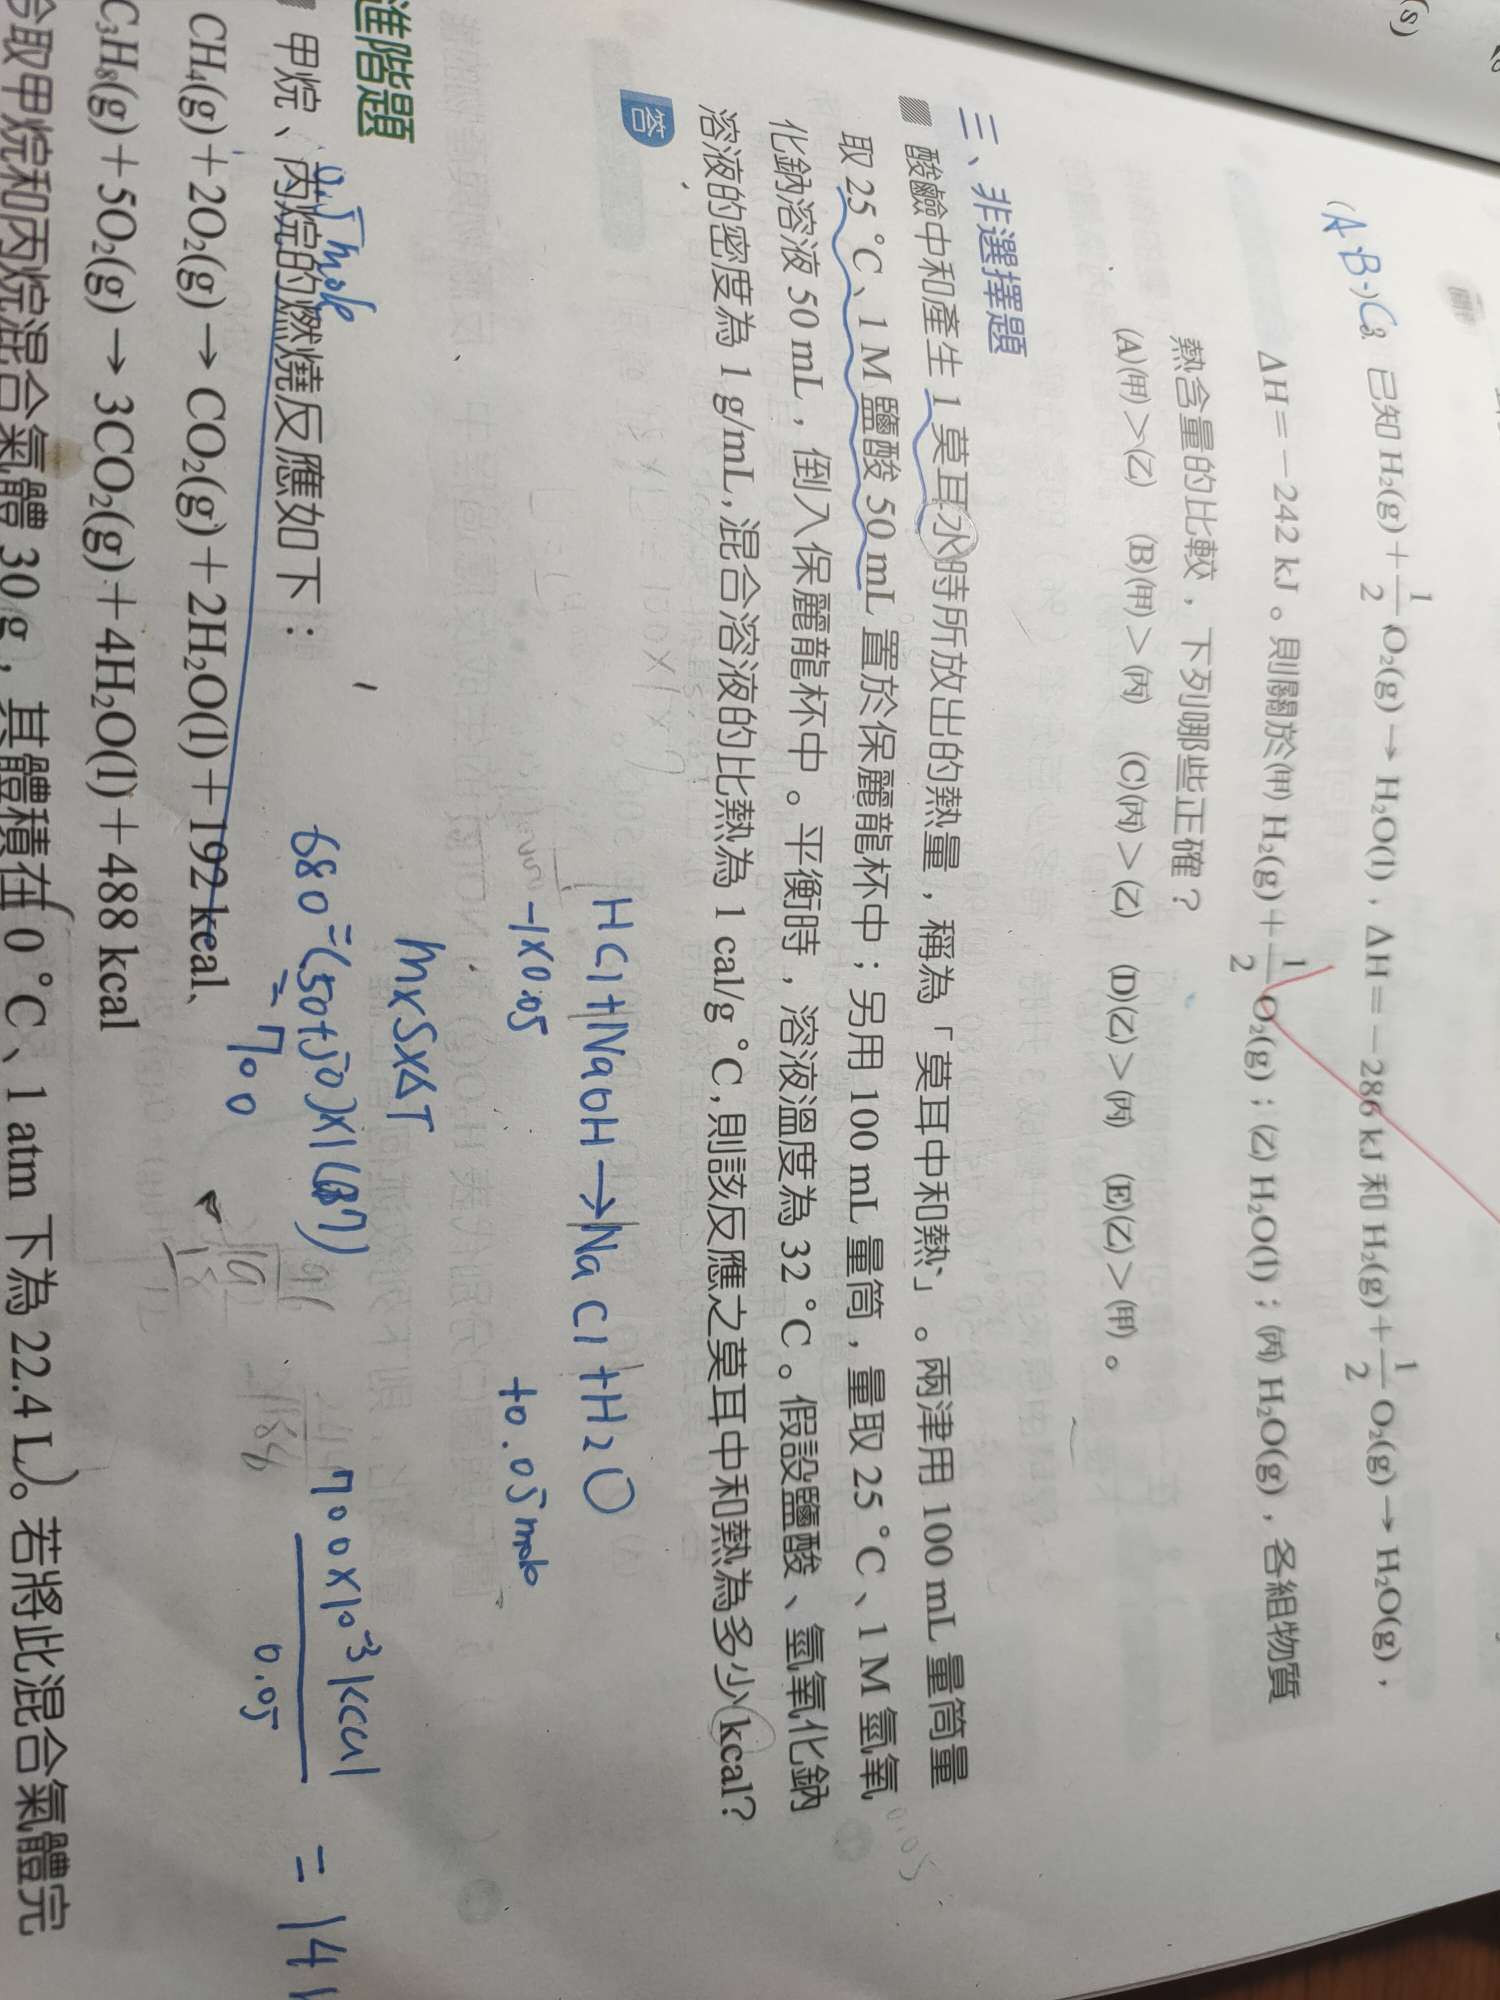 (s)
(A.B.)C 3. 已知 H₂(g)＋1/2 O₂(g)→H₂O(l)，ΔH＝－286 kJ 和 H₂(g)＋1/2 O₂(g)→H₂O(g)，
ΔH＝－242 kJ。則關於(甲) H₂(g)＋1/2 O₂(g)；(乙) H₂O(l)；(丙) H₂O(g)，各組物質
熱含量的比較，下列哪些正確？
(A)(甲)＞(乙) (B)(甲)＞(丙) (C)(丙)＞(乙) (D)(乙)＞(丙) (E)(乙)＞(甲)。
三、非選擇題
酸鹼中和產生 1 莫耳水時所放出的熱量，稱為「莫耳中和熱」。兩津用 100 mL 量筒量
取 25 ℃、1 M 鹽酸 50 mL 置於保麗龍杯中；另用 100 mL 量筒，量取 25 ℃、1 M 氫氧
化鈉溶液 50 mL，倒入保麗龍杯中。平衡時，溶液溫度為 32 ℃。假設鹽酸、氫氧化鈉
溶液的密度為 1 g/mL，混合溶液的比熱為 1 cal/g ℃，則該反應之莫耳中和熱為多少 kcal？
0.05
答
HCl+NaOH→NaCl+H₂O
-1×0.05 +0.05mole
m×S×ΔT
680=(50+50)×1(37)
=700
700×10⁻³kcal
0.05
=14
進階題
0.5mole
甲烷、丙烷的燃燒反應如下：
CH₄(g)＋2O₂(g)→CO₂(g)＋2H₂O(l)＋192 kcal、
C₃H₈(g)＋5O₂(g)→3CO₂(g)＋4H₂O(l)＋488 kcal
今取甲烷和丙烷混合氣體 30 g，其體積在(0 ℃、1 atm 下為 22.4 L)。若將此混合氣體完